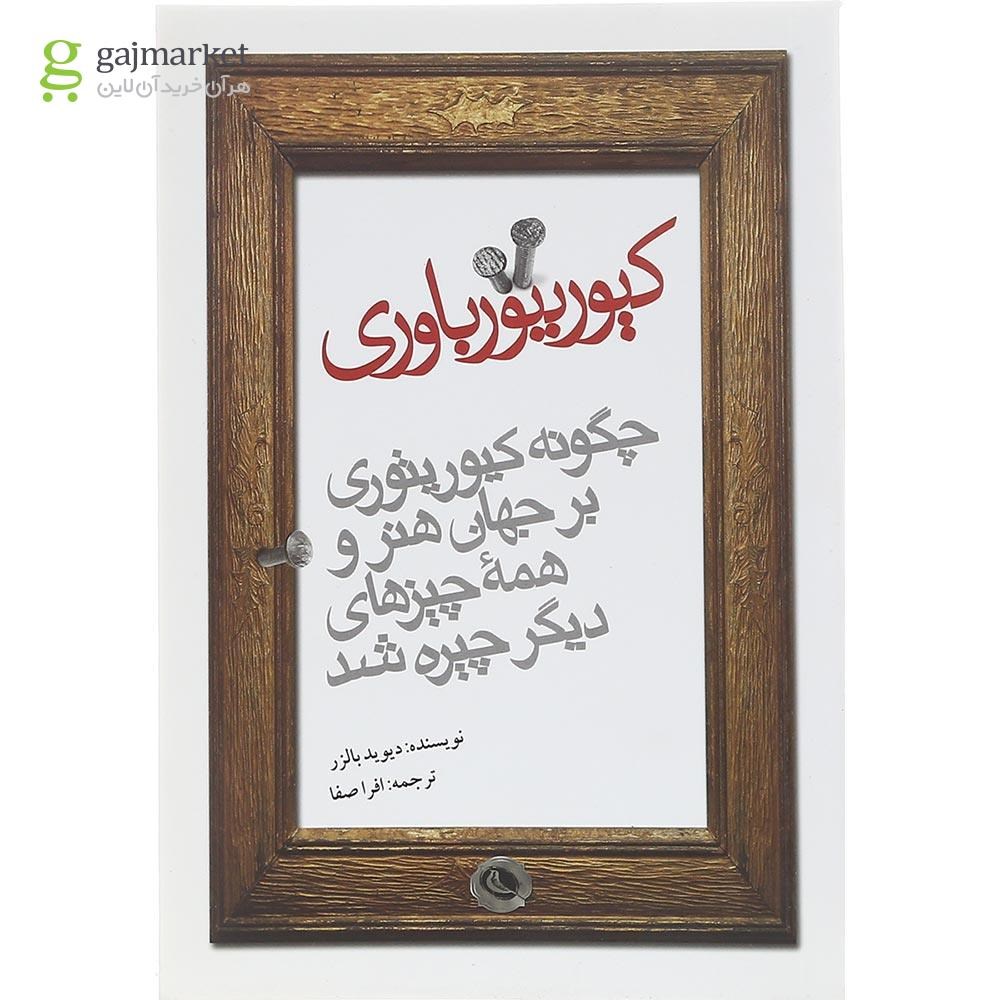 gajmarket
هر آن خرید آن لاین
کیوریتورباوری
چگونه کیوریتوری
بر جهان هنر و
همهٔ چیزهای
دیگر چیره شد
نویسنده: دیوید بالزر
ترجمه: افرا صفا